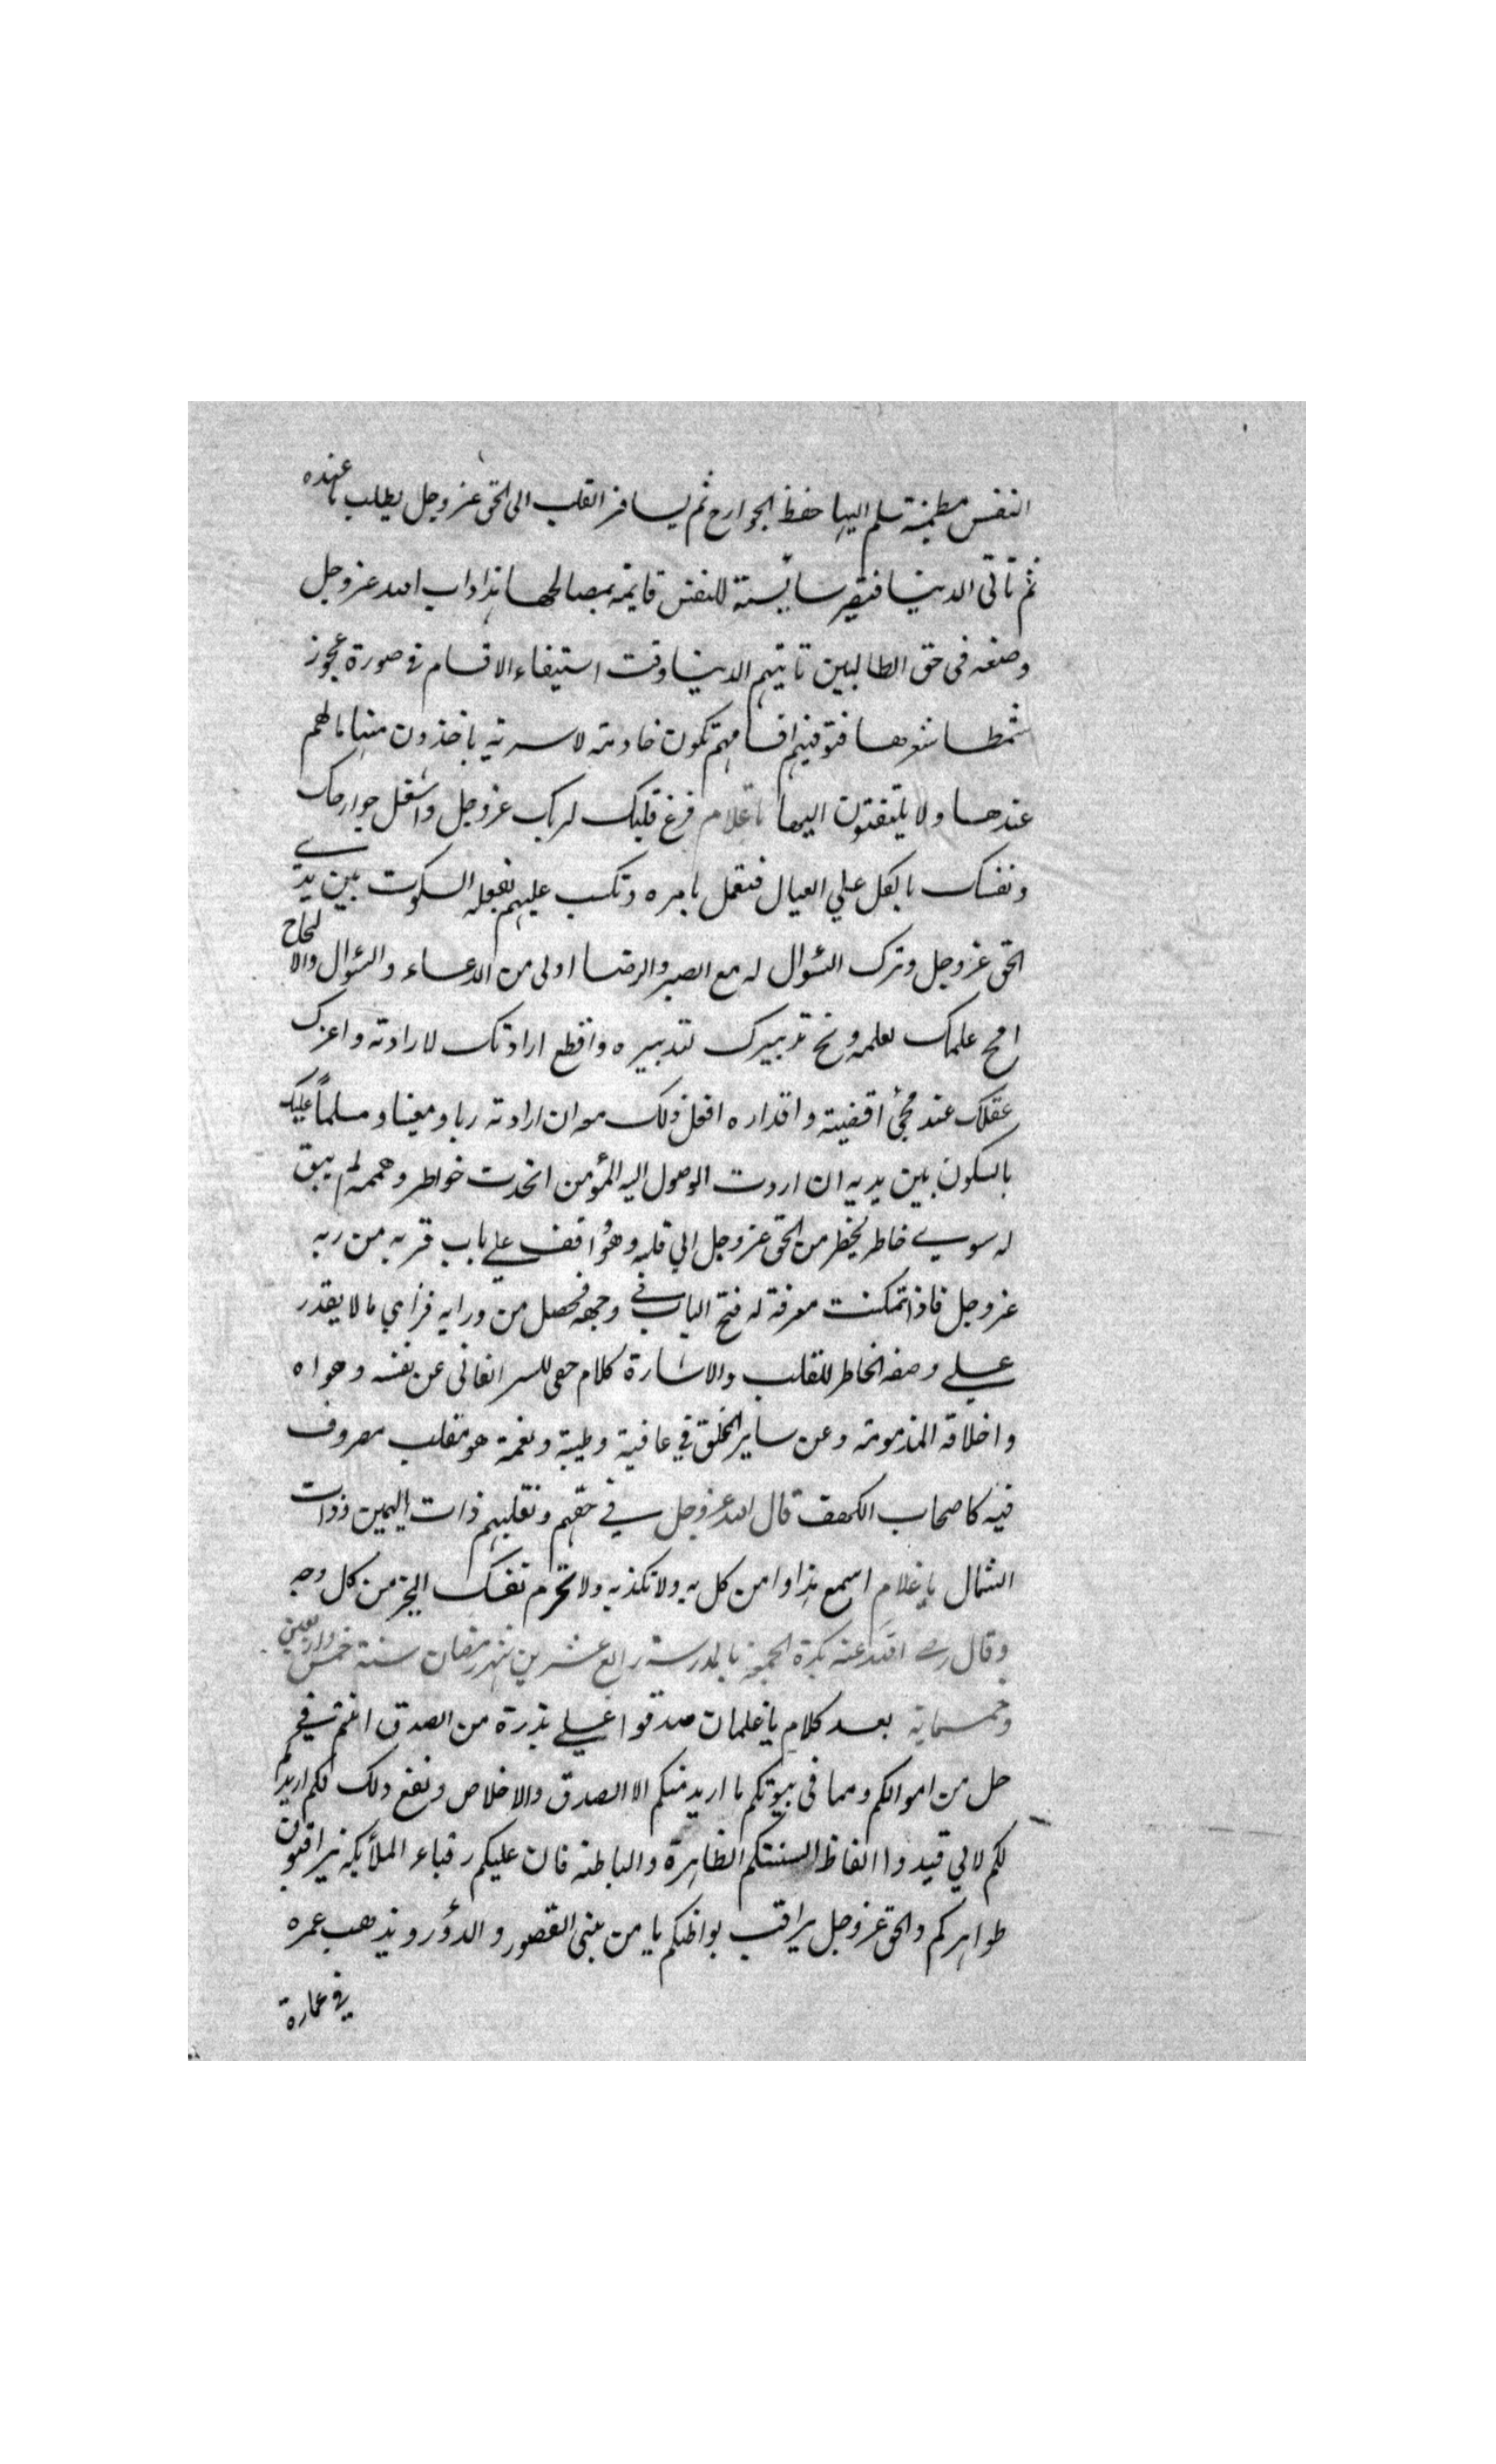 النفس مطمئنة تسلم اليها حفظ الجوارح ثم يسافر القلب الى الحق عز وجل يطلب ما عنده
ثم تاتى الدنيا فتصير سايسة للنفس قايمة بمصالحها هذا داب الله عز وجل
وصنعه فى حق الطالبين تاتيهم الدنيا وقت استيفاء الاقسام فى صورة عجوز
شمطا شوهها فتوفيهم اقسامهم تكون خادمة لا سرية ياخذون منها مالهم
عندها ولا يلتفتون اليها يا غلام فرغ قلبك لربك عز وجل واشغل جوارحك
ونفسك بالكل على العيال فتعمل بامره وتكسب عليهم بفعله السكوت بين يدي
الحق عز وجل وترك السؤال له مع الصبر والرضا اولى من الدعاء والسؤال والالحاح
امح علمك لعلمه ونح تدبيرك لتدبيره واقطع ارادتك لارادته واعزك
عقلك عند مجئ اقضيته واقداره افعل ذلك معه ان اردته ربا ومعينا ومسلماً عليك
بالسكون بين يديه ان اردت الوصول اليه المؤمن اتحدت خواطره وهممه لم يبق
له سوى خاطر يخطر من الحق عز وجل الي قلبه وهو واقف على باب قربه من ربه
عز وجل فاذا تمكنت معرفة له فتح الباب في وجهه فحصل من ورايه فراى ما لا يقدر
على وصفه الخاطر للقلب والاشارة كلام خفى للسر الفانى عن نفسه وهواه
واخلاقه المذمومة وعن ساير الخلق في عافية وطيبة ونعمة هو مقلب مصروف
فيه كاصحاب الكهف قال الله عز وجل في حقهم ونقلبهم ذات اليمين وذات
الشمال يا غلام اسمع هذا وامن كل به ولا تكذبه ولا تحرم نفسك الخير من كل وجه
وقال رضي الله عنه بكرة الجمعة بالمدرسة رابع عشرين شهر رمضان سنة خمس واربعين
وخمسماية بعد كلام يا غلمان صدقوا على بذرة من الصدق انتم في
حل من اموالكم ومما فى بيوتكم ما اريد منكم الا الصدق والاخلاص ونفع ذلك لكم اريدكم
لكم لا لي قيدوا الفاظ السنتكم الظاهرة والباطنة فان عليكم رقباء الملائكة يراقبون
ظواهركم والحق عز وجل يراقب بواطنكم يا من يبنى القصور والدؤر ويذهب عمره
في عمارة